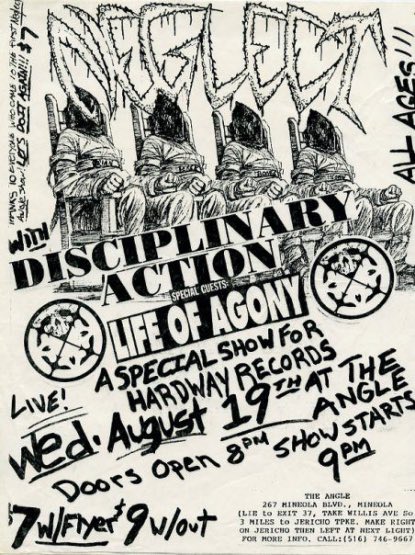 THANKS TO EVERYONE WHO CAME TO THE FIRST
ANGLE SHOW! LET'S DO IT AGAIN!!! $7
NEGLECT
ALL AGES!!!
WITH
DISCIPLINARY
ACTION
SPECIAL GUESTS:
LIFE OF AGONY
A SPECIAL SHOW FOR
HARDWAY RECORDS
LIVE!
Wed. August 19TH AT THE
ANGLE
Doors Open 8PM SHOW STARTS
9PM
$7 W/Flyer $9 W/out
THE ANGLE
267 MINEOLA BLVD., MINEOLA
(LIE to EXIT 37, TAKE WILLIS AVE So
3 MILES to JERICHO TPKE. MAKE RIGHT
ON JERICHO THEN LEFT AT NEXT LIGHT)
FOR MORE INFO. CALL:(516) 746-9667